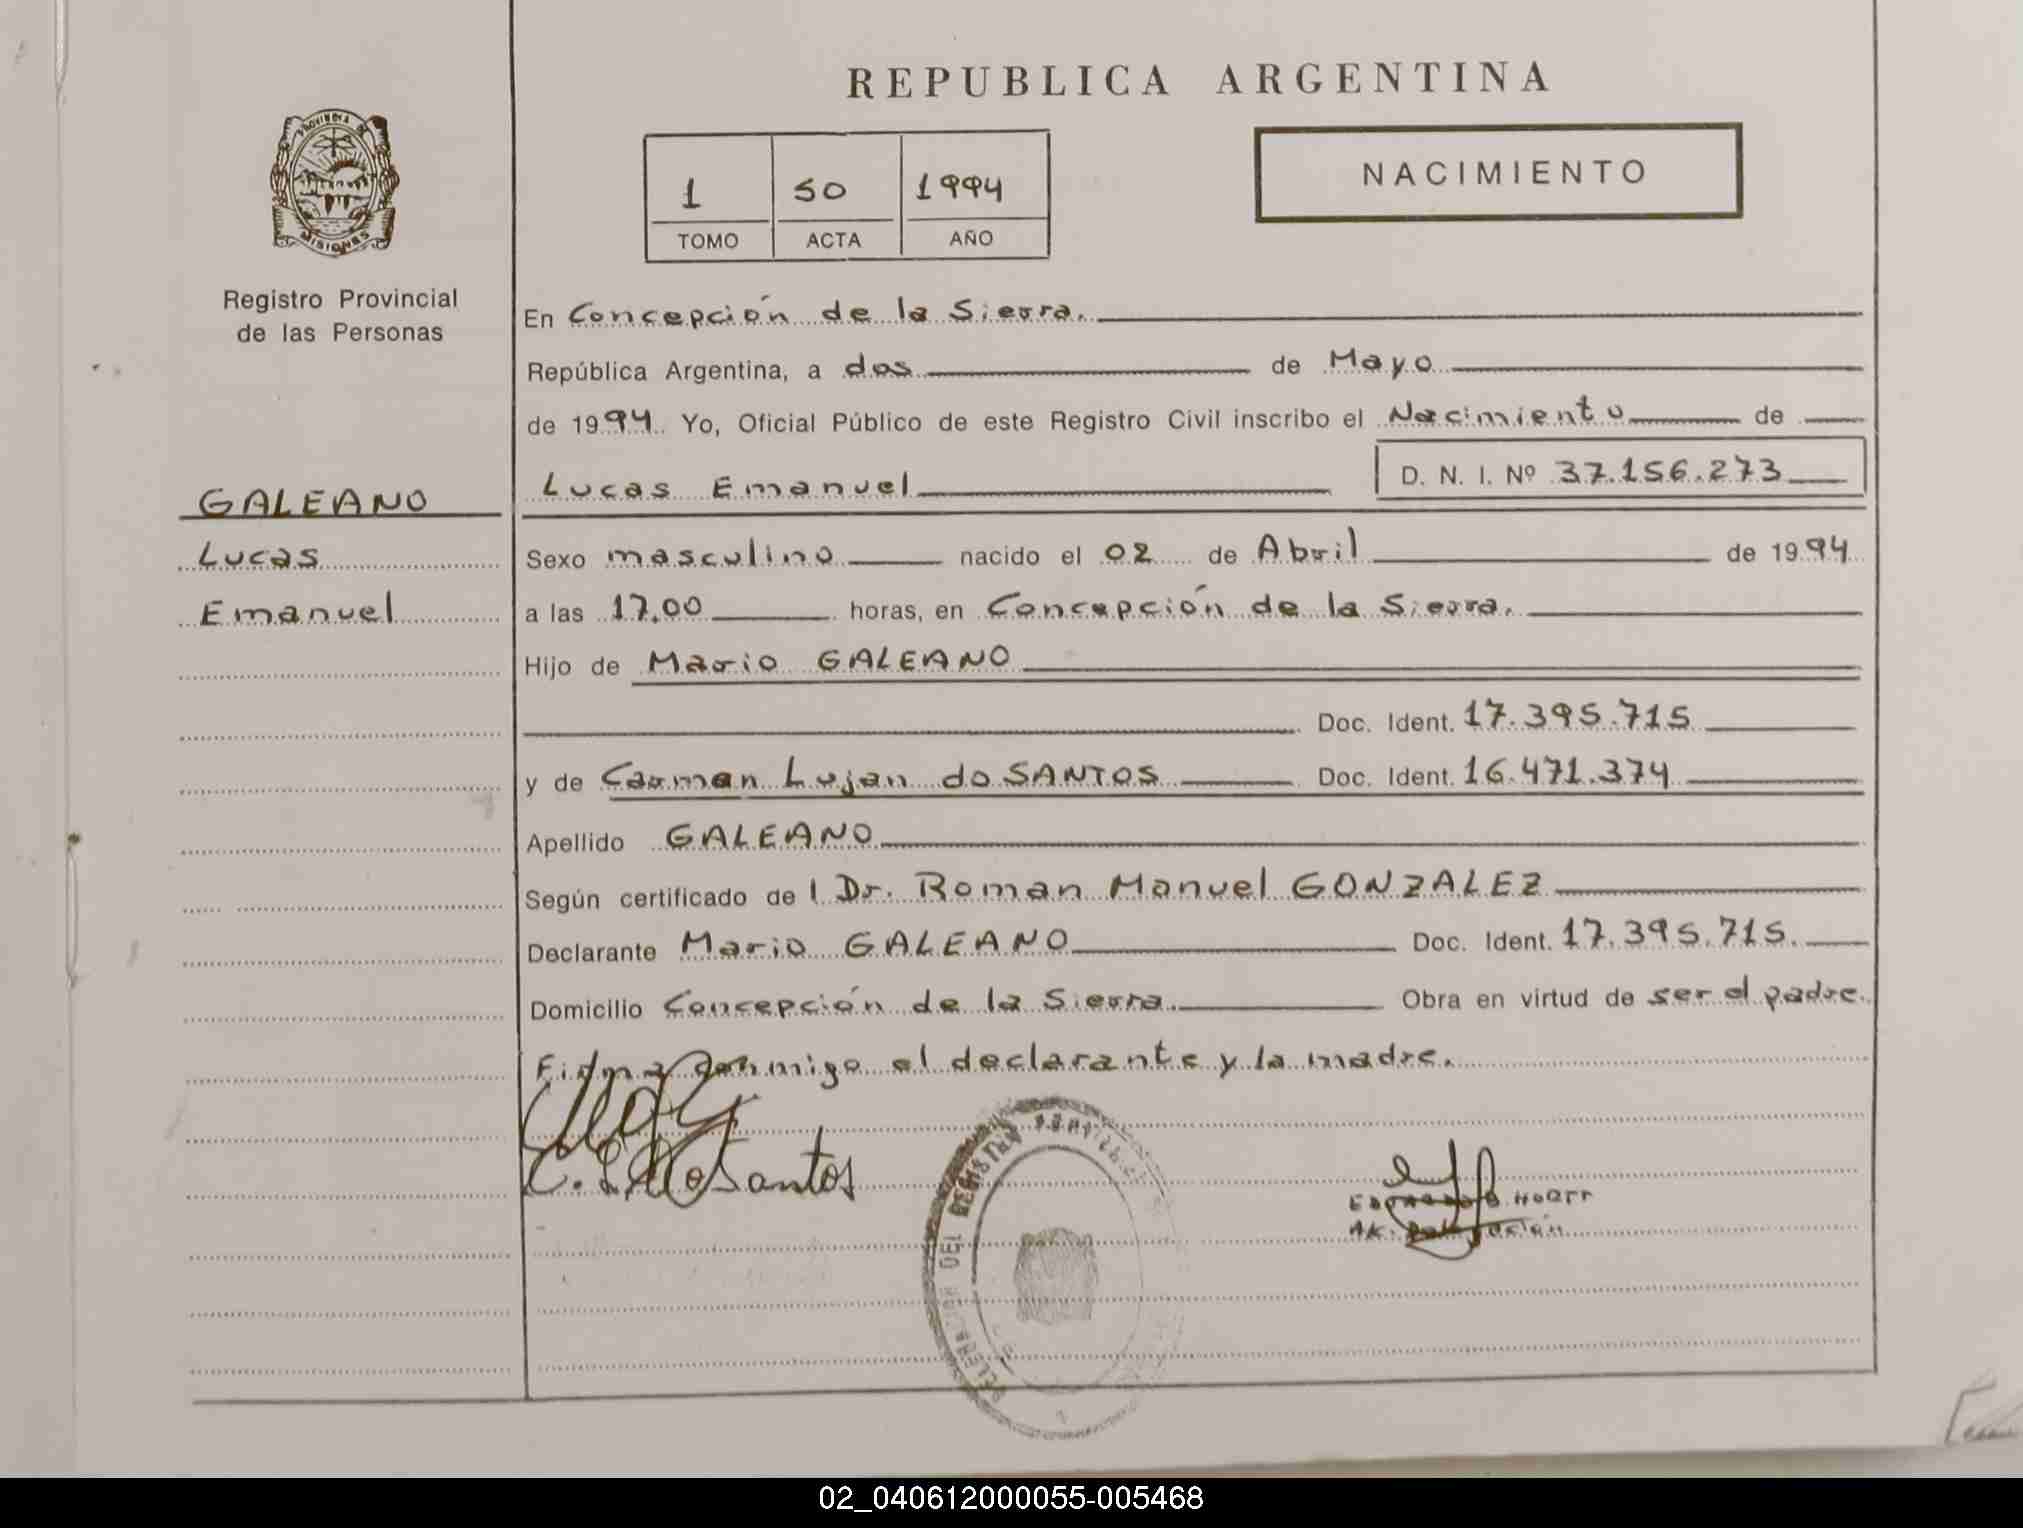 REPUBLICA ARGENTINA
PROVINCIA DE
MISIONES
1 50 1994
TOMO ACTA AÑO
NACIMIENTO
Registro Provincial
de las Personas
GALEANO
Lucas
Emanuel
En Concepción de la Sierra.
República Argentina, a dos de Mayo
de 1994 Yo, Oficial Público de este Registro Civil inscribo el Nacimiento de
Lucas Emanuel D. N. I. Nº 37.156.273
Sexo masculino nacido el 02 de Abril de 1994
a las 17.00 horas, en Concepción de la Sierra.
Hijo de Mario GALEANO
Doc. Ident. 17.395.715
y de Carmen Lujan do SANTOS Doc. Ident. 16.471.374
Apellido GALEANO
Según certificado de l Dr. Roman Manuel GONZALEZ
Declarante Mario GALEANO Doc. Ident. 17.395.715.
Domicilio Concepción de la Sierra. Obra en virtud de ser el padre.
Firma conmigo el declarante y la madre.
C. L. do Santos
DEL REGISTRO
02_040612000055-005468